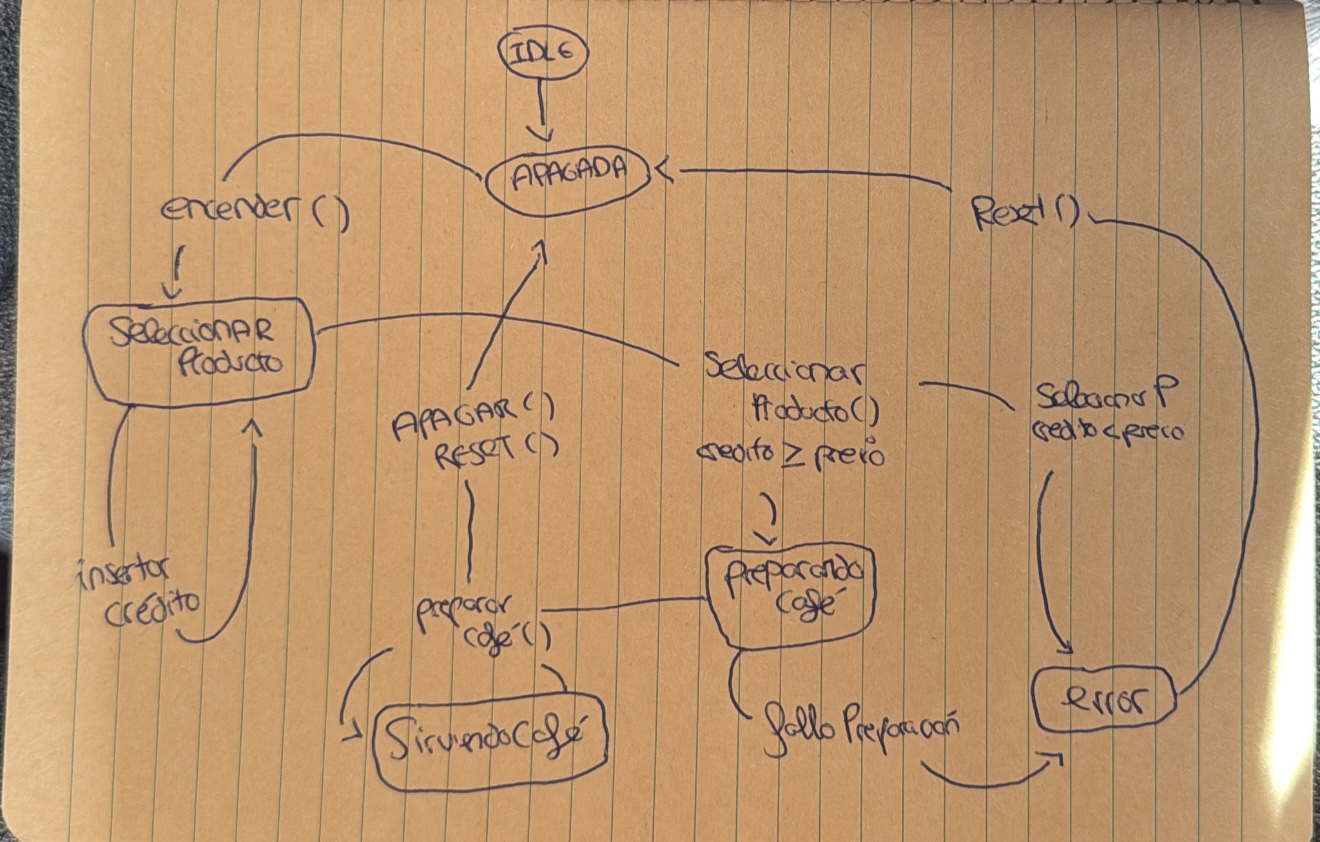 IDLE
APAGADA
encender ()
Reset ()
SeleccionAR
Producto
Seleccionar
Producto()
credito ≥ precio
Seleccionar P
credito < precio
APAGAR ()
RESET ()
insertar
crédito
preparar
café ()
preparando
café
Sirviendo Café
fallo Preparación
error